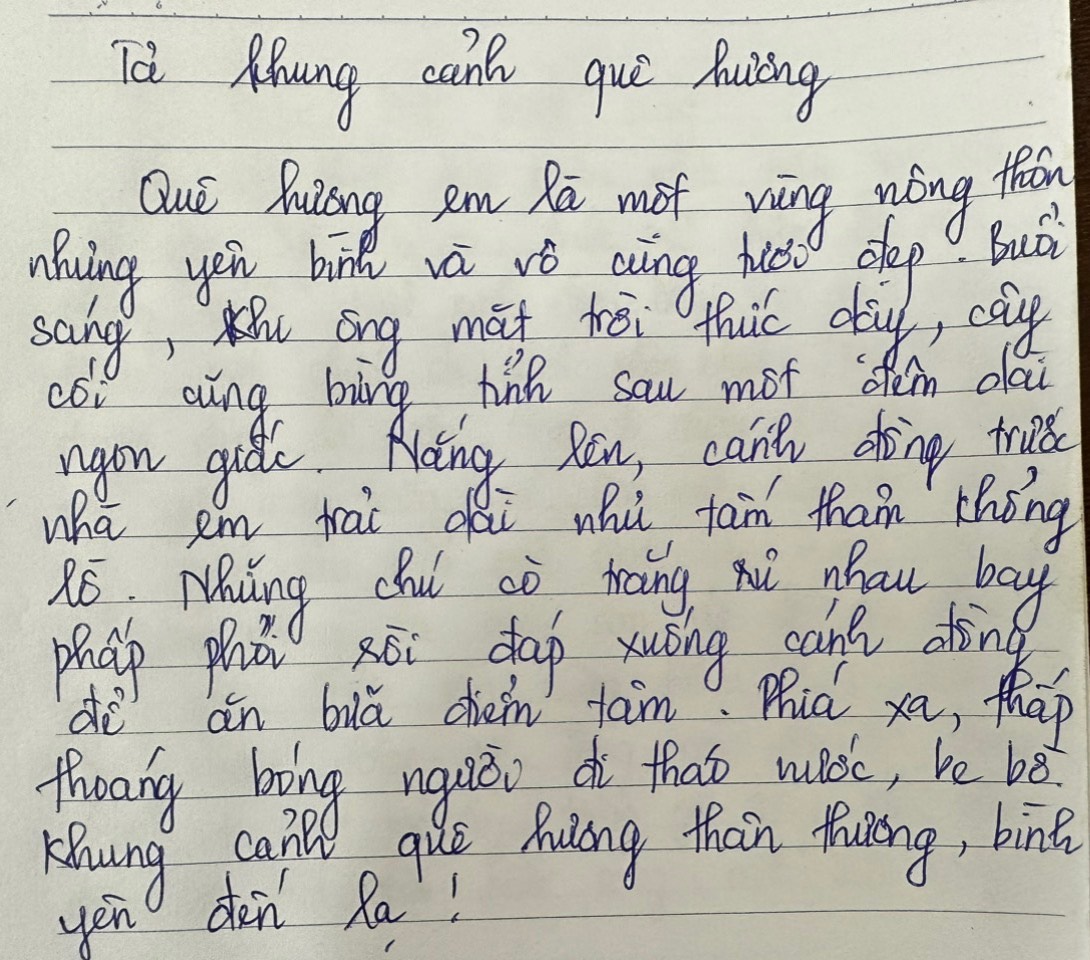 Tả khung cảnh quê hương
Quê hương em là một vùng nông thôn
nhưng yên bình và vô cùng tươi đẹp. Buổi
sáng, khi ông mặt trời thức dậy, cây
cối cũng bừng tỉnh sau một đêm dài
ngon giấc. Nắng lên, cánh đồng trước
nhà em trải dài như tấm thảm khổng
lồ. Những chú cò trắng rủ nhau bay
phấp phới rồi đáp xuống cánh đồng
để ăn bữa điểm tâm. Phía xa, thấp
thoáng bóng người đi tháo nước, be bờ.
Khung cảnh quê hương thân thương, bình
yên đến lạ!